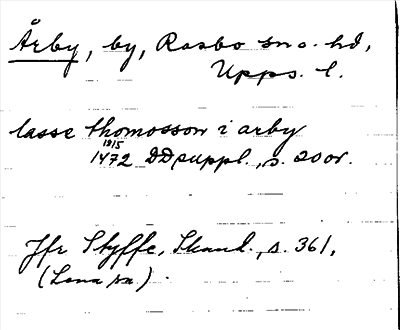 Årby, by, Rasbo sn o. hd,
Upps. l.
lasse thomosson i arby
18/5
1472 DD suppl., s. 20 or.
Jfr Styffe, Skand., s. 361,
(Lena sn.).